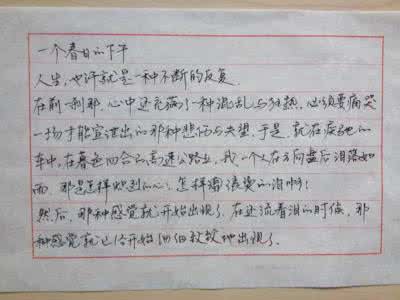 一个春日的下午
人生,也许就是一种不断的反复.
在前一刹那,心中还充满了一种混乱与狂热,必须要痛哭
一场才能宣泄出的那种悲伤与失望,于是,就在疾驰的
车中,在暮色四合的高速公路上,我一个人在方向盘后泪落如
雨.那是怎样炽烈的心,怎样滚烫的泪啊!
然后,那种感觉就开始出现了.在还流着泪的时候,那
种感觉就已经开始细细致致地出现了.